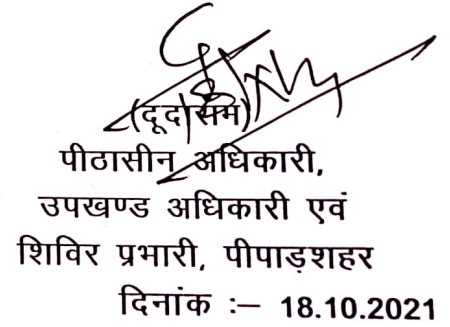 पीठासीन अधिकारी,
उपखण्ड अधिकारी एवं
शिविर प्रभारी, पीपाड़शहर
दिनांक :– 18.10.2021